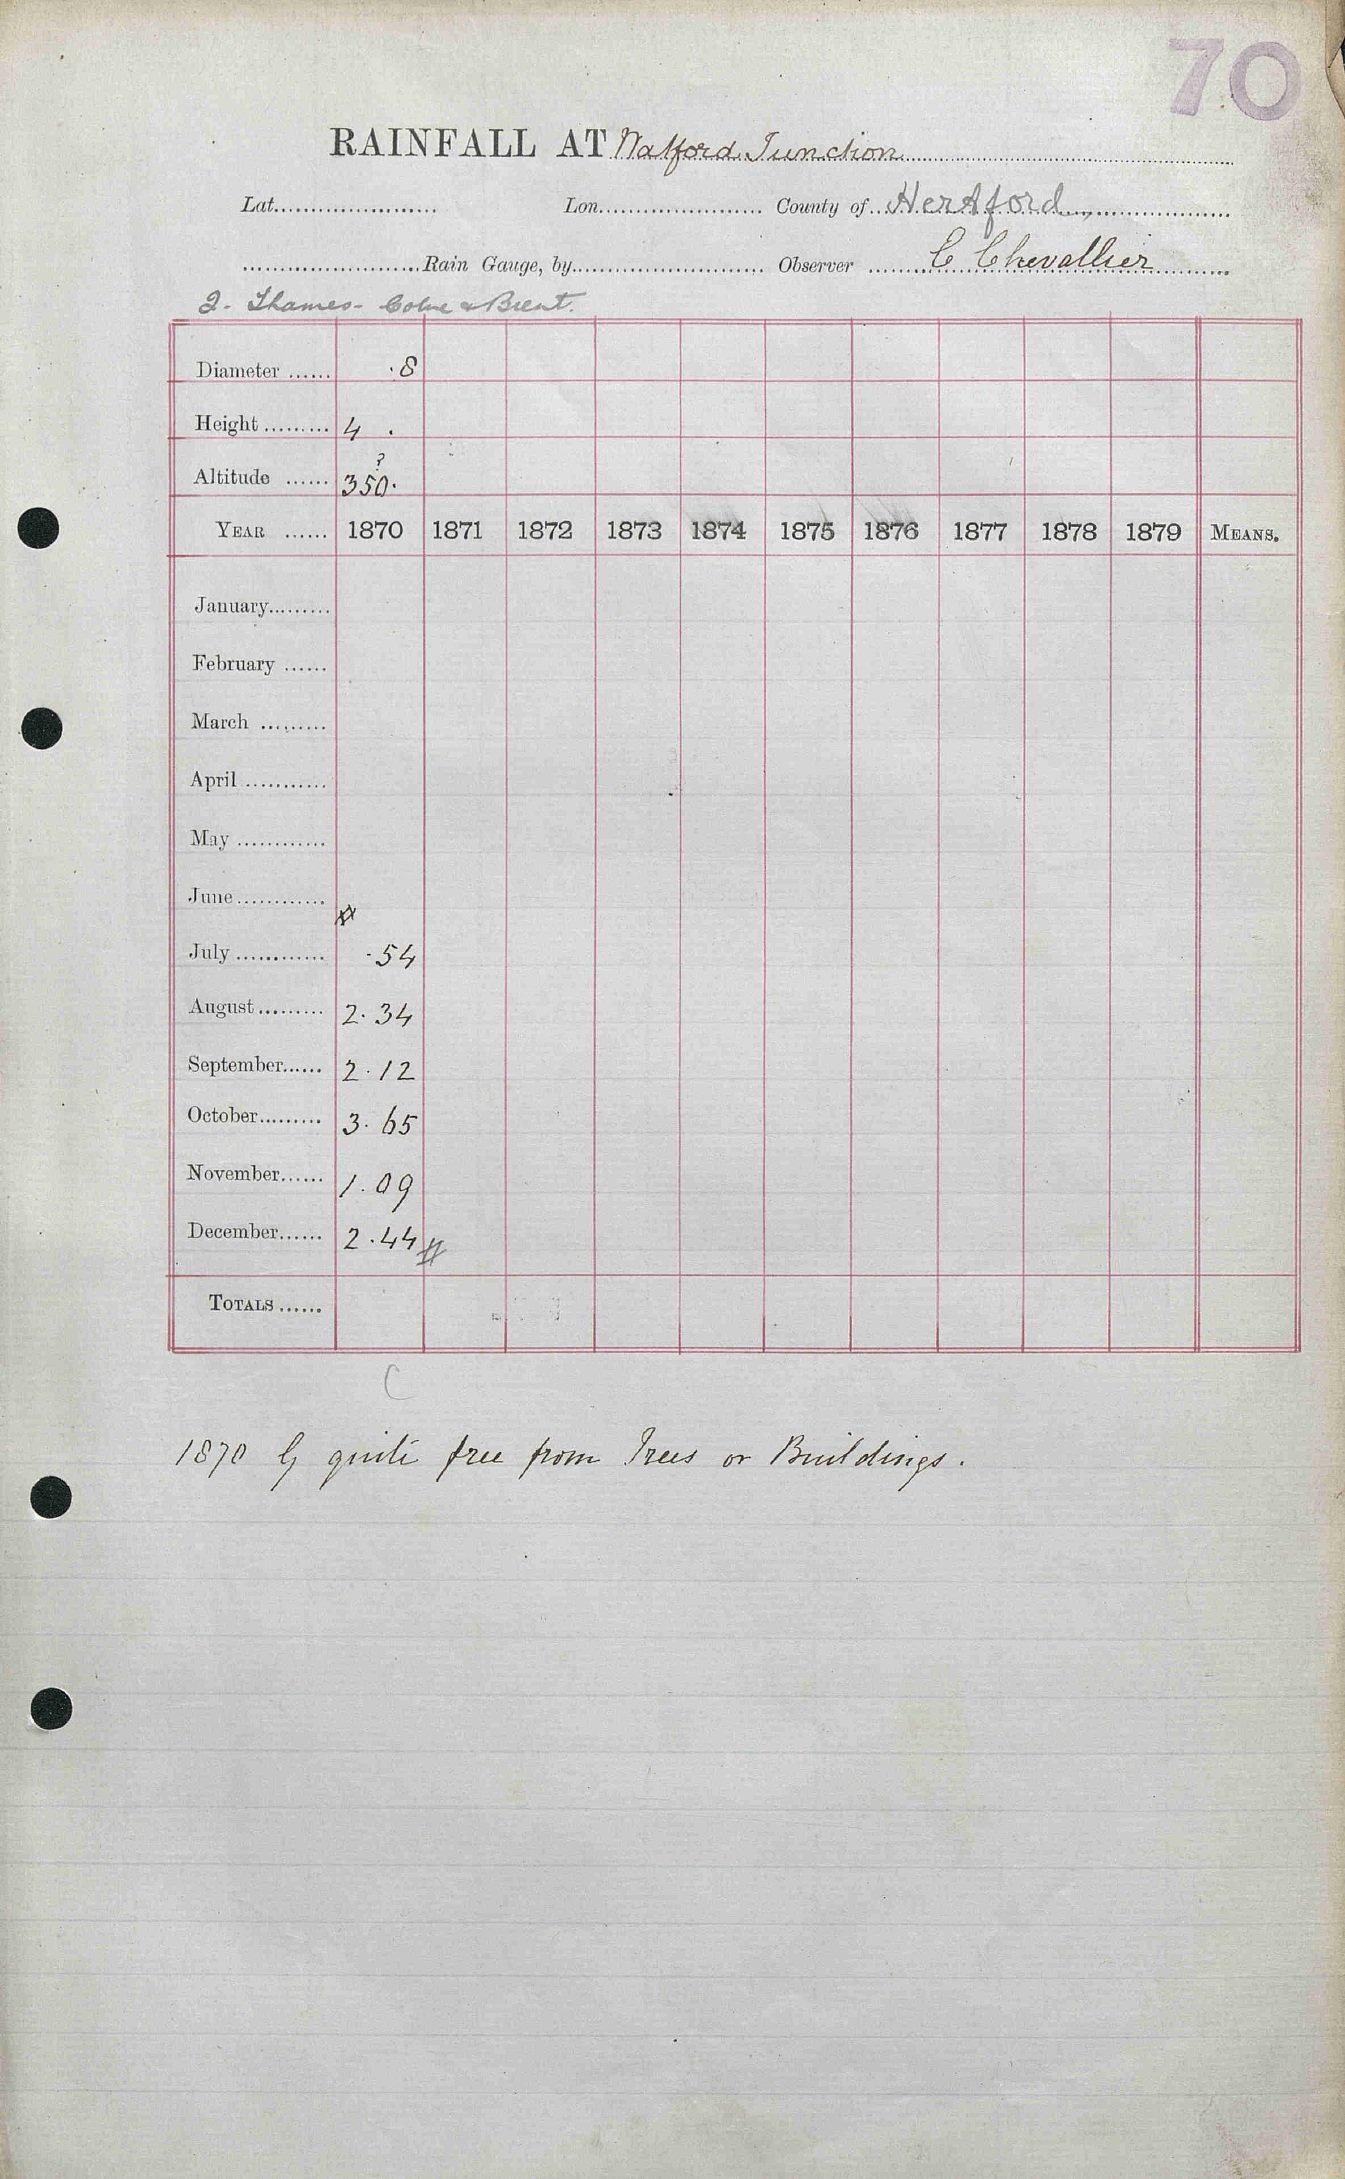 70
RAINFALL AT Watford Junction
Lat. Lon. County of Hertford
Rain Gauge, by Observer C Chevallier
2. Thames - Colne & Brent.
Diameter ...... .8
Height ......... 4 .
Altitude ...... 350. ?
YEAR ...... 1870 1871 1872 1873 1874 1875 1876 1877 1878 1879 MEANS.
January.........
February ......
March .........
April ...........
May ............
June............
July ............ .54
August......... 2.34
September...... 2.12
October......... 3.65
November...... 1.09
December...... 2.44 #
TOTALS ......
C
1870 G quite free from Trees or Buildings.